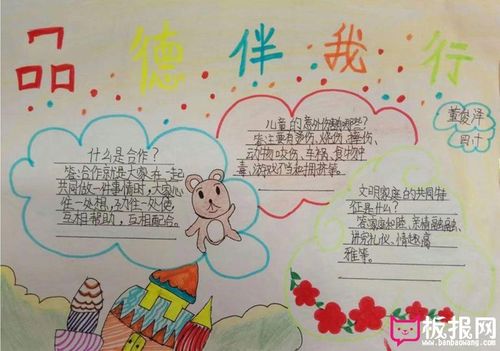 品德伴我行
董俊泽
四.十
什么是合作?
答:合作就是大家在一起
共同做一件事情时,大家心
往一处想,劲往一处使
互相帮助,互相配合。
儿童的意外伤害有哪些?
答:主要有烫伤、烧伤、摔伤、
动物咬伤、车祸、食物中
毒、游戏不当和拥挤等。
文明家庭的共同特
征是什么?
答:家庭和睦、亲情融融、
讲究礼仪、情趣高
雅等。
板报网
www.banbaowang.com